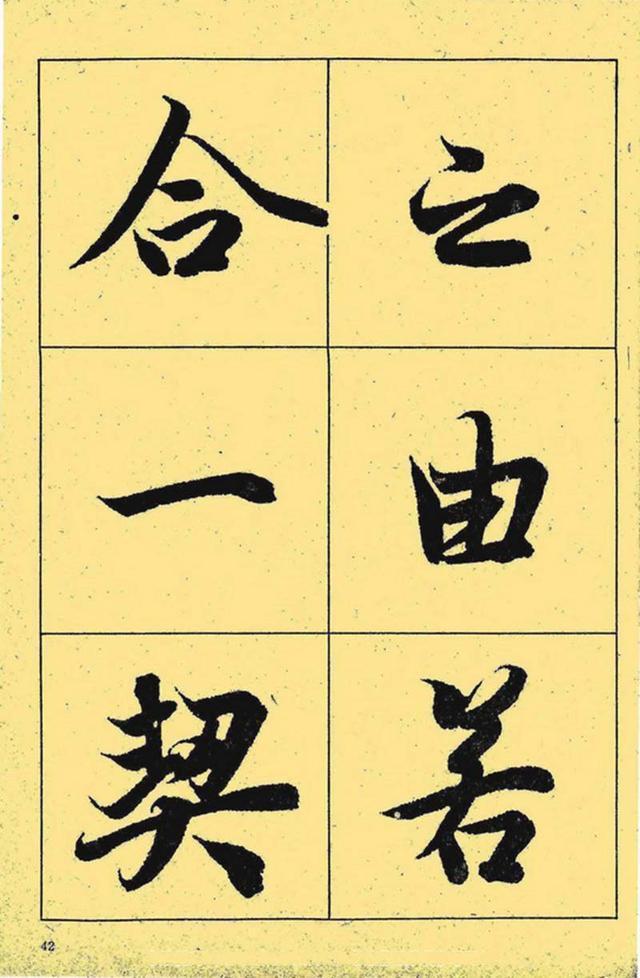 之由若
合一契
42